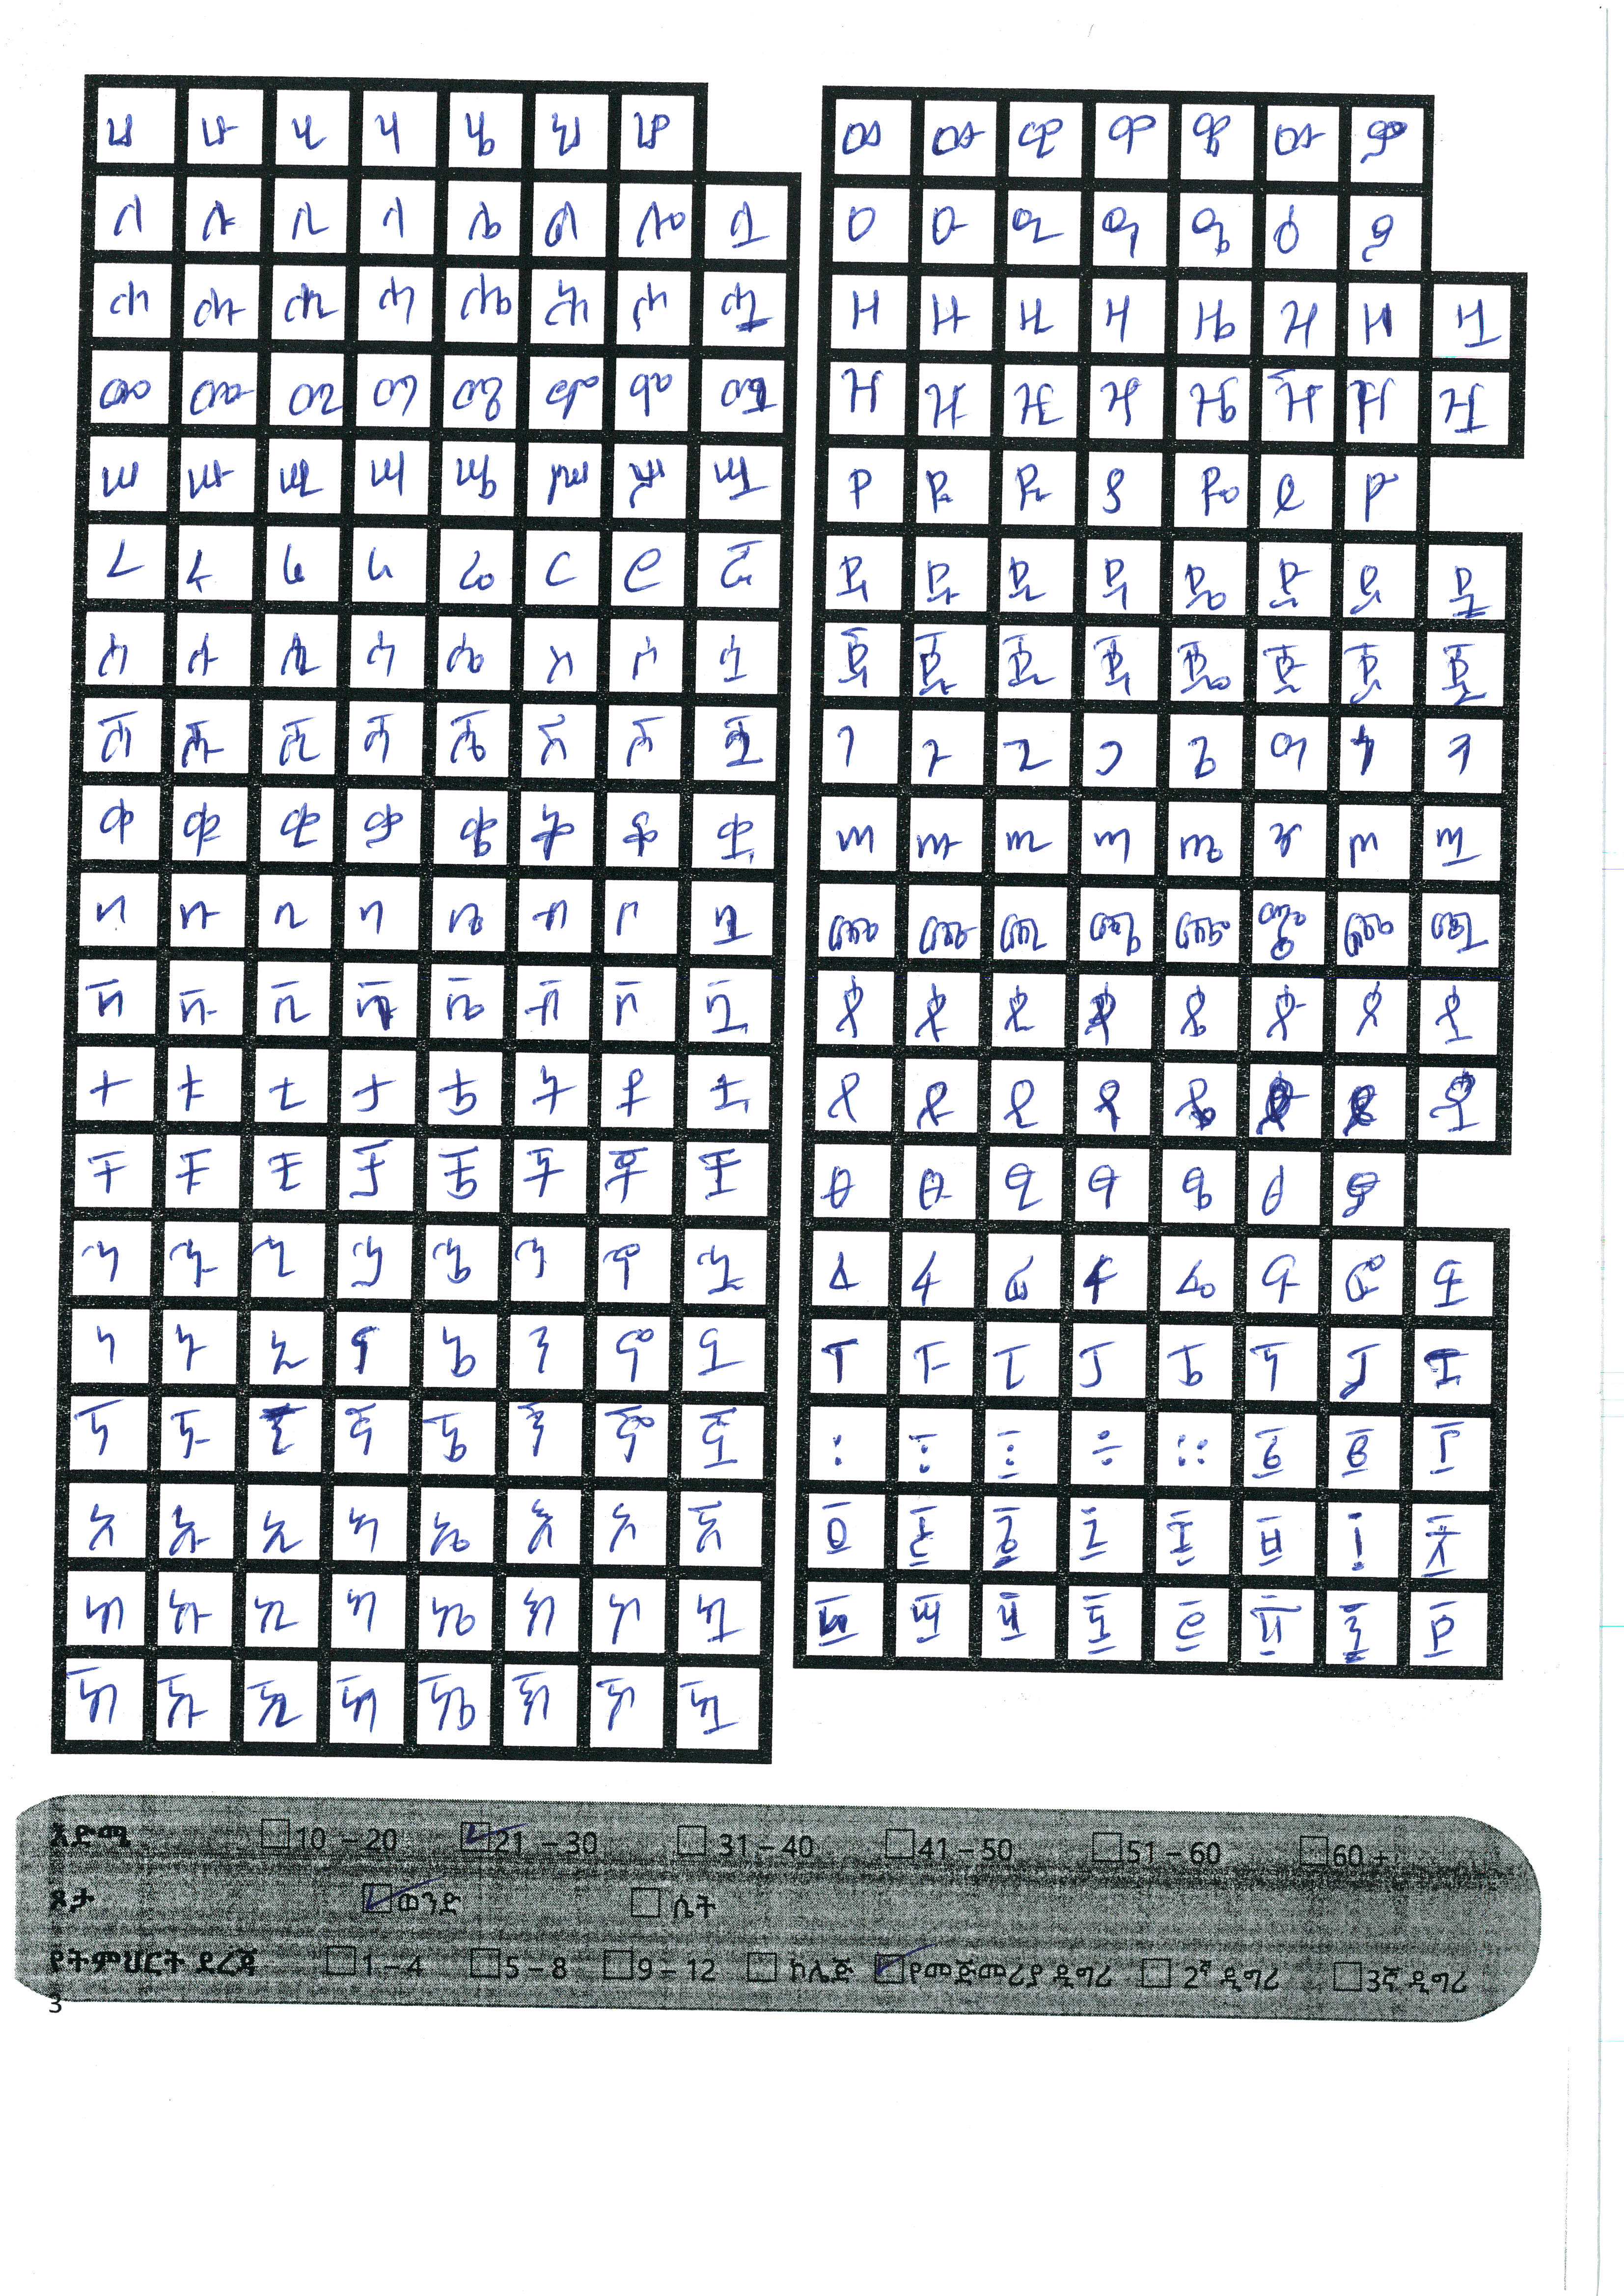 ሀ ሁ ሂ ሃ ሄ ህ ሆ
ለ ሉ ሊ ላ ሌ ል ሎ ሏ
ሐ ሑ ሒ ሓ ሔ ሕ ሖ ሗ
መ ሙ ሚ ማ ሜ ም ሞ ሟ
ሠ ሡ ሢ ሣ ሤ ሥ ሦ ሧ
ረ ሩ ሪ ራ ሬ ር ሮ ሯ
ሰ ሱ ሲ ሳ ሴ ስ ሶ ሷ
ሸ ሹ ሺ ሻ ሼ ሽ ሾ ሿ
ቀ ቁ ቂ ቃ ቄ ቅ ቆ ቋ
በ ቡ ቢ ባ ቤ ብ ቦ ቧ
ቨ ቩ ቪ ቫ ቬ ቭ ቮ ቯ
ተ ቱ ቲ ታ ቴ ት ቶ ቷ
ቸ ቹ ቺ ቻ ቼ ች ቾ ቿ
ኀ ኁ ኂ ኃ ኄ ኅ ኆ ኋ
ነ ኑ ኒ ና ኔ ን ኖ ኗ
ኘ ኙ ኚ ኛ ኜ ኝ ኞ ኟ
አ ኡ ኢ ኣ ኤ እ ኦ ኧ
ከ ኩ ኪ ካ ኬ ክ ኮ ኳ
ኸ ኹ ኺ ኻ ኼ ኽ ኾ ዃ
ወ ዉ ዊ ዋ ዌ ው ዎ
ዐ ዑ ዒ ዓ ዔ ዕ ዖ
ዘ ዙ ዚ ዛ ዜ ዝ ዞ ዟ
ዠ ዡ ዢ ዣ ዤ ዥ ዦ ዧ
የ ዩ ዪ ያ ዬ ይ ዮ
ደ ዱ ዲ ዳ ዴ ድ ዶ ዷ
ጀ ጁ ጂ ጃ ጄ ጅ ጆ ጇ
ገ ጉ ጊ ጋ ጌ ግ ጎ ጓ
ጠ ጡ ጢ ጣ ጤ ጥ ጦ ጧ
ጨ ጩ ጪ ጫ ጬ ጭ ጮ ጯ
ጰ ጱ ጲ ጳ ጴ ጵ ጶ ጷ
ጸ ጹ ጺ ጻ ጼ ጽ ጾ ጿ
ፀ ፁ ፂ ፃ ፄ ፅ ፆ
ፈ ፉ ፊ ፋ ፌ ፍ ፎ ፏ
ፐ ፑ ፒ ፓ ፔ ፕ ፖ ፗ
፡ ፣ ፤ ÷ ። ፩ ፪ ፫
፬ ፭ ፮ ፯ ፰ ፱ ፲ ፳
፴ ፵ ፶ ፷ ፸ ፹ ፺ ፻
እድሜ 10 – 20 21 – 30 31 – 40 41 – 50 51 – 60 60 +
ጾታ ወንድ ሴት
የትምህርት ደረጃ 1 – 4 5 – 8 9 – 12 ኮሌጅ የመጀመሪያ ዲግሪ 2ኛ ዲግሪ 3ኛ ዲግሪ
3